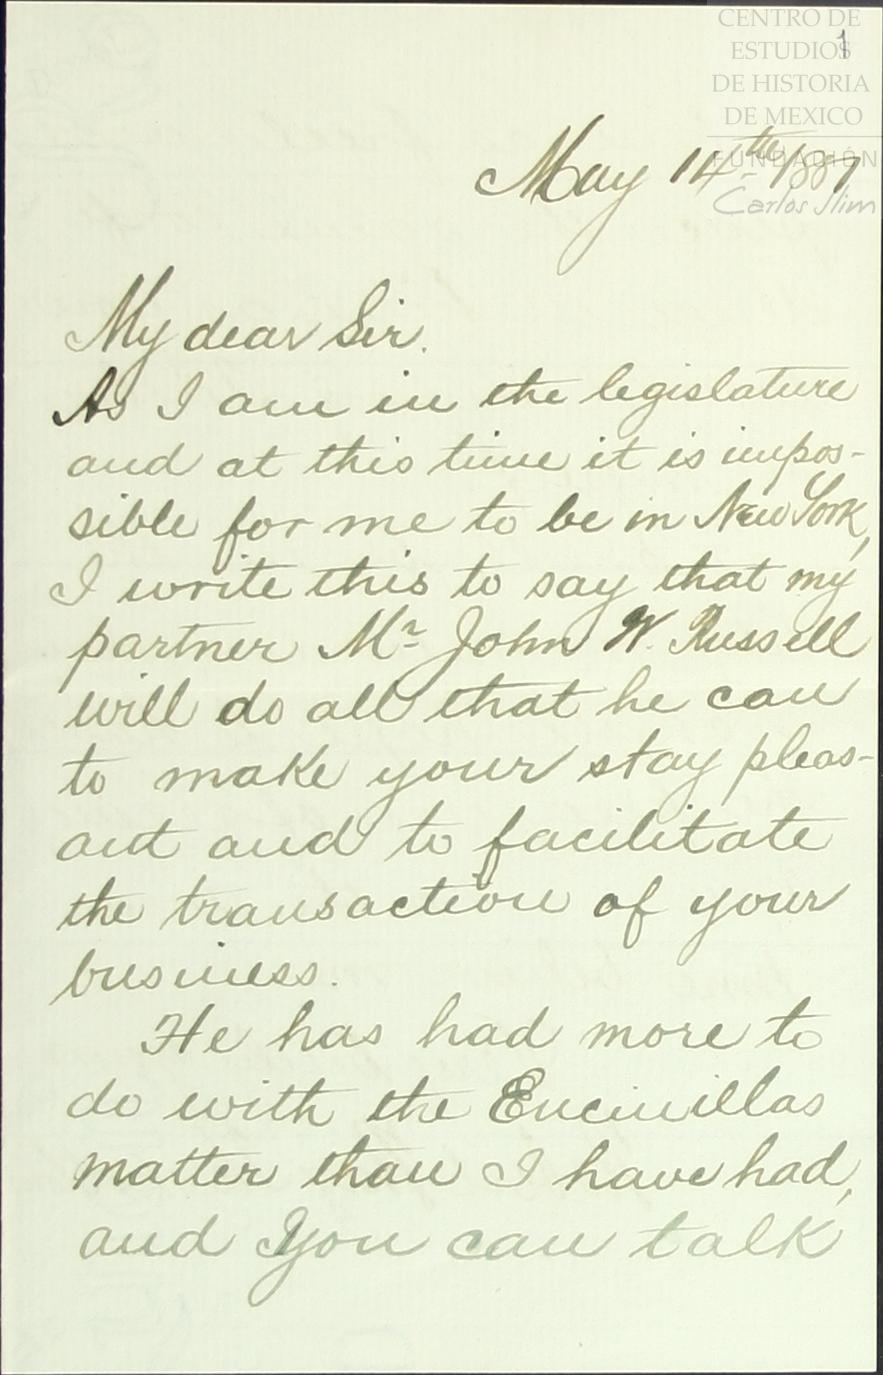 CENTRO DE
ESTUDIOS
DE HISTORIA
DE MEXICO
FUNDACIÓN
Carlos Slim
1
May 14th 1887
My dear Sir.
As I am in the legislature
and at this time it is impos-
sible for me to be in New York,
I write this to say that my
partner Mr John W. Russell
will do all that he can
to make your stay pleas-
ant and to facilitate
the transaction of your
business.
He has had more to
do with the Encinillas
matter than I have had,
and you can talk